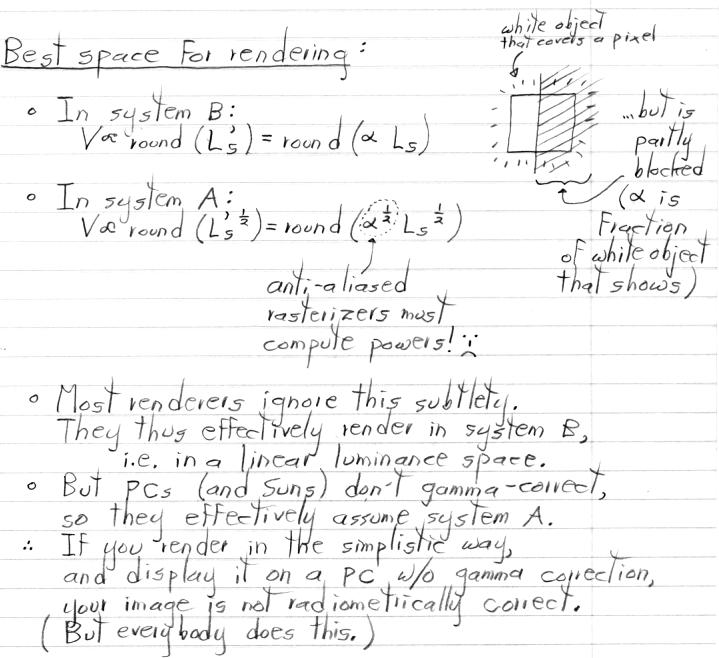 Best space for rendering:
white object
that covers a pixel
...but is
partly
blocked
(α is
fraction
of white object
that shows)
• In system B:
V ∝ round (L's) = round (α Ls)
• In system A:
V ∝ round (L's^½) = round (α^½ Ls^½)
anti-aliased
rasterizers must
compute powers! :(
• Most renderers ignore this subtlety.
They thus effectively render in system B,
i.e. in a linear luminance space.
• But PCs (and Suns) don't gamma-correct,
so they effectively assume system A.
∴ If you render in the simplistic way,
and display it on a PC w/o gamma correction,
your image is not radiometrically correct.
(But everybody does this.)